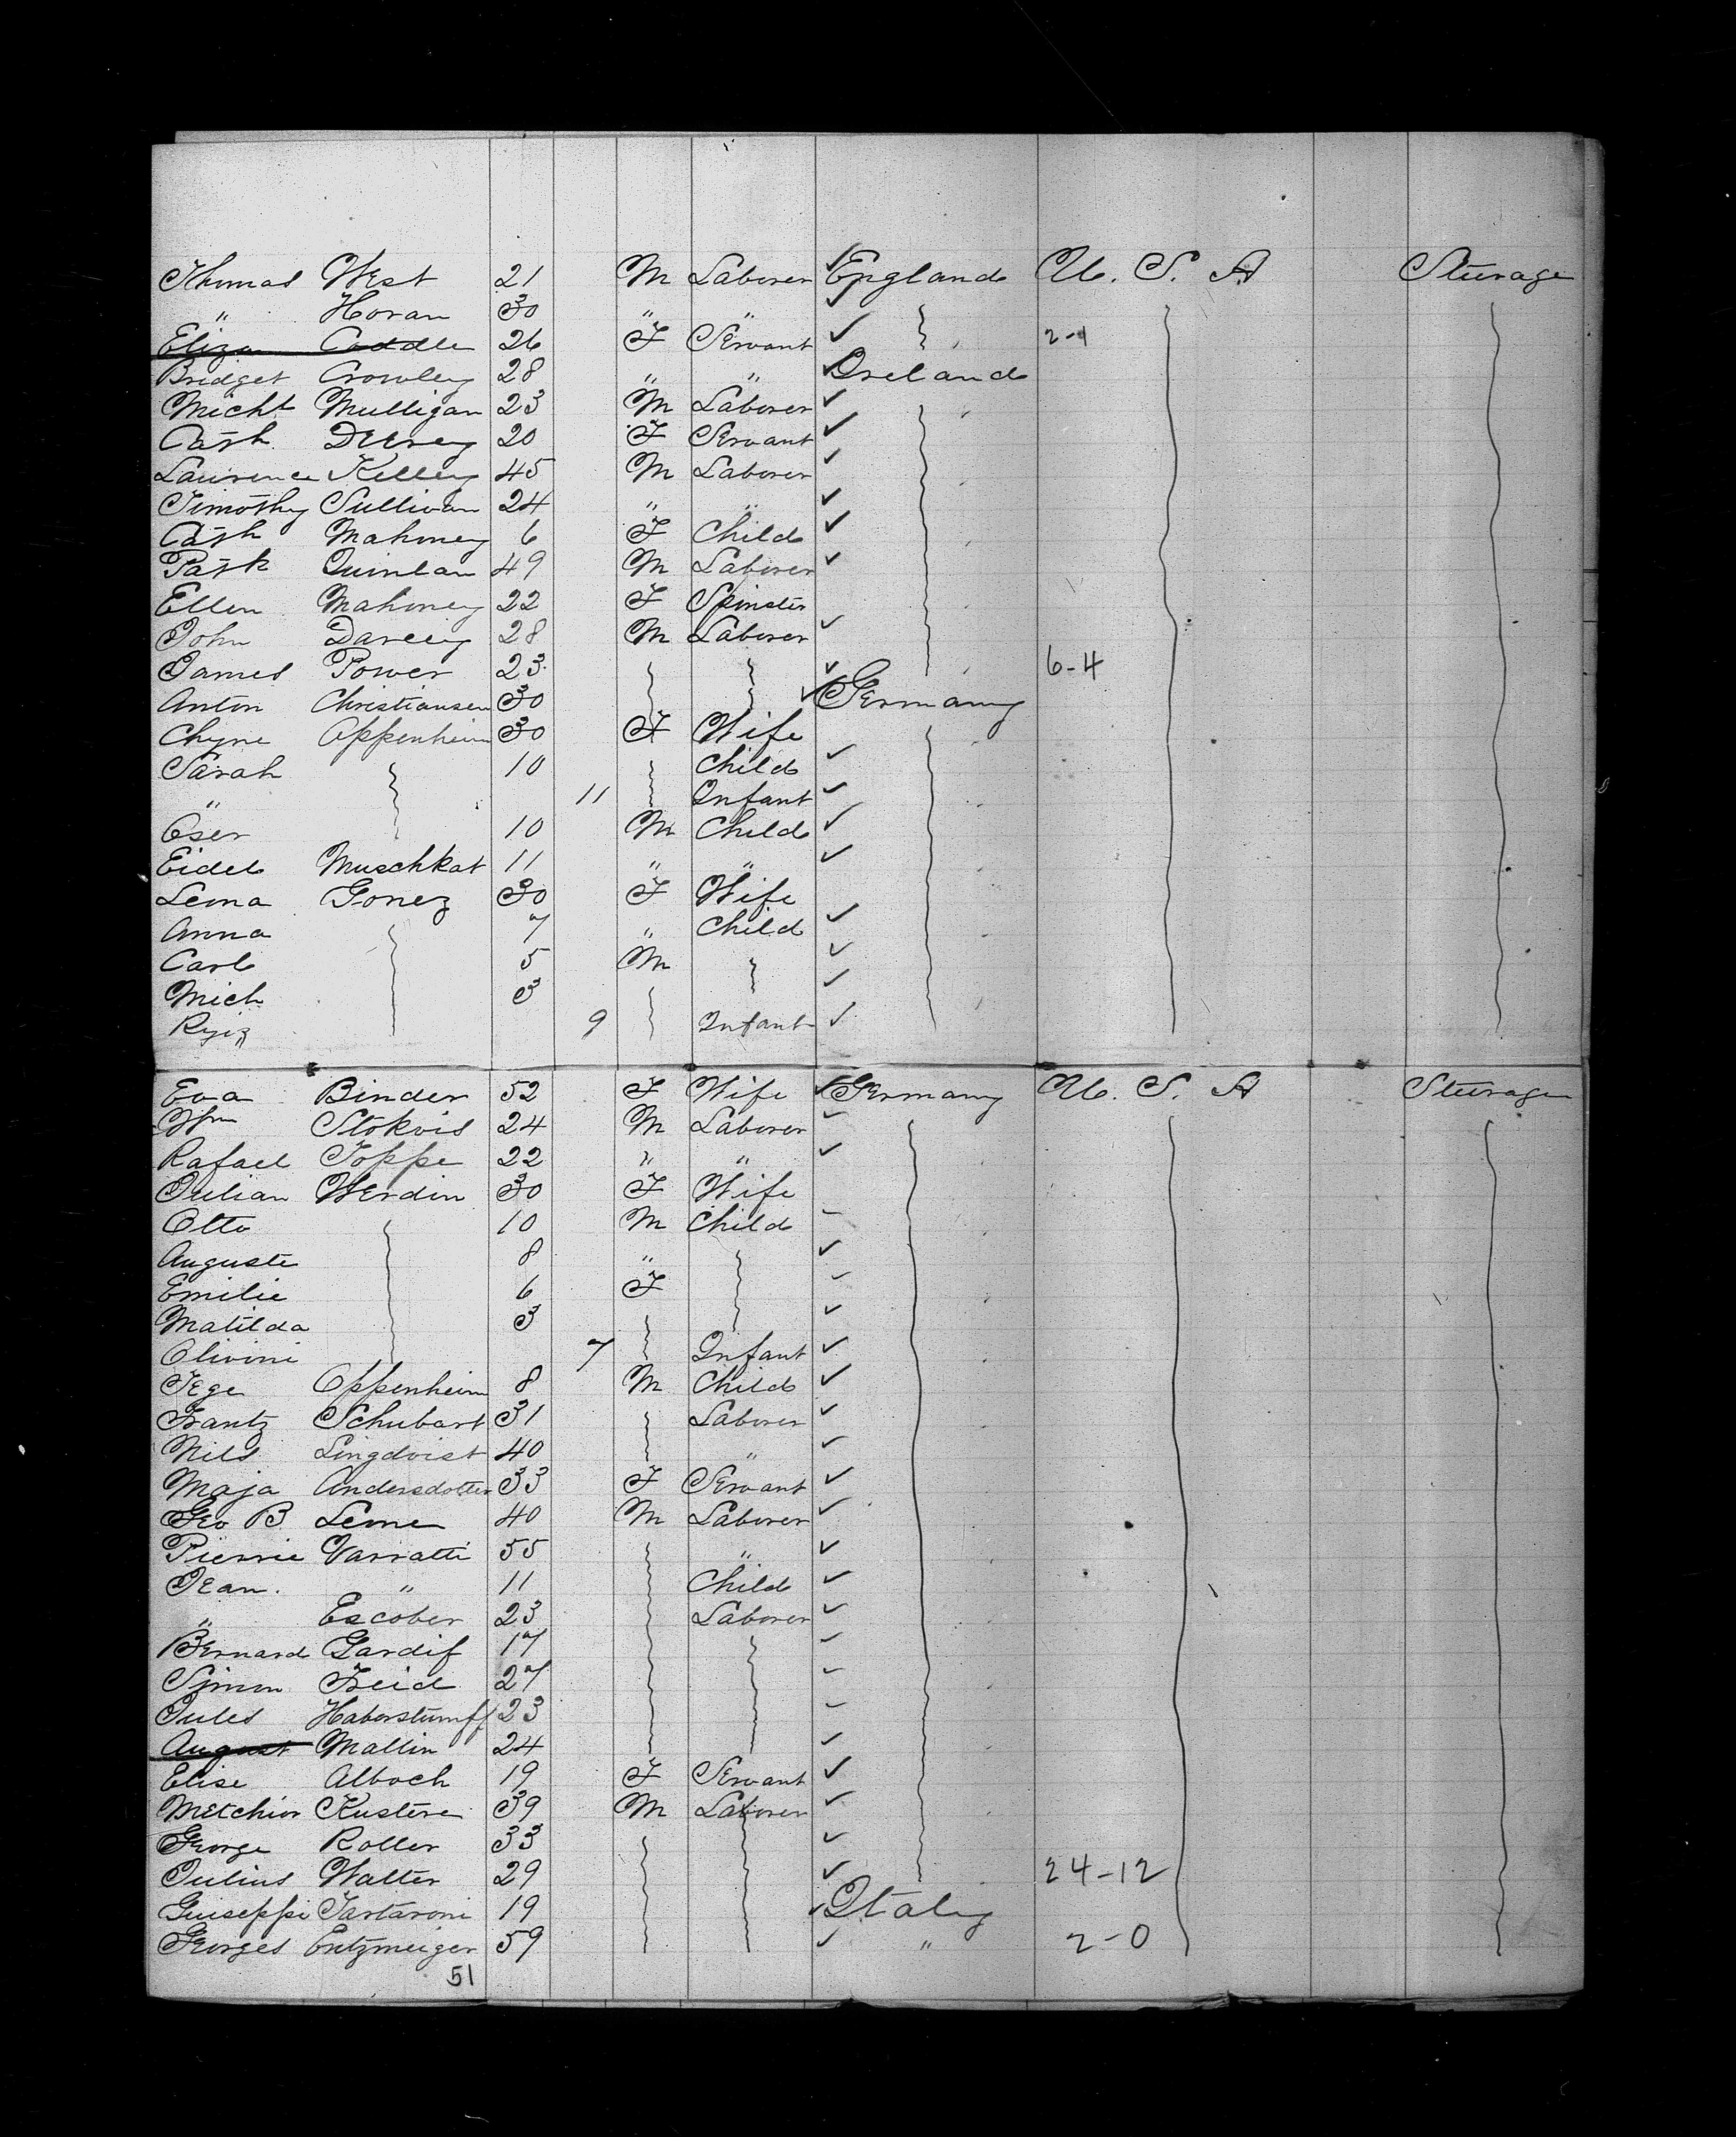 Thomas West 21 M Laborer England U. S. A Steerage
" Horan 30 " "
Eliza Caddle 26 F Servant 2-1
Bridget Crowley 28 " " Ireland
Micht Mulligan 23 M Laborer
Cath Deerey 20 F Servant
Laurence Kelley 45 M Laborer
Timothy Sullivan 24 " "
Cath Mahoney 6 F Child
Patk Quinlan 49 M Laborer
Ellen Mahoney 22 F Spinster
John Darcey 28 M Laborer
James Power 23 6-4
Anton Christiansen 30 Germany
Chyne Oppenheim 30 F Wife
Sarah 10 Child
" 11 Infant
Oser 10 M Child
Eidel Muschkat 11 " "
Lema Gonez 30 F Wife
Anna 7 " Child
Carl 5 M
Mich 3
9 Infant
Eva Binder 52 F Wife Germany U. S. A Steerage
Wm Stokvis 24 M Laborer
Rafael Joppe 22 " "
Julian Werdin 30 F Wife
Otto 10 M Child
Auguste 8 "
Emilie 6 F
Matilda 3
Olivini 7 Infant
Jege Oppenheim 8 M Child
Frantz Schubart 31 Laborer
Nils Lingdvist 40 "
Maja Andersdotter 33 F Servant
Geo B Leone 40 M Laborer
Pierrie Varratti 55 "
Jean. " 11 Child
" Escober 23 Laborer
Bernard Gardif 17
Simon Freid 27
Jules Haberstumff 23
August Mallin 24
Elise Alboch 19 F Servant
Melchior Kustere 39 M Laborer
George Roller 33
Julius Walter 29 24-12
Guiseppi Tartaroni 19 Italy
Georges Entzmeiger 59 " 2-0
51